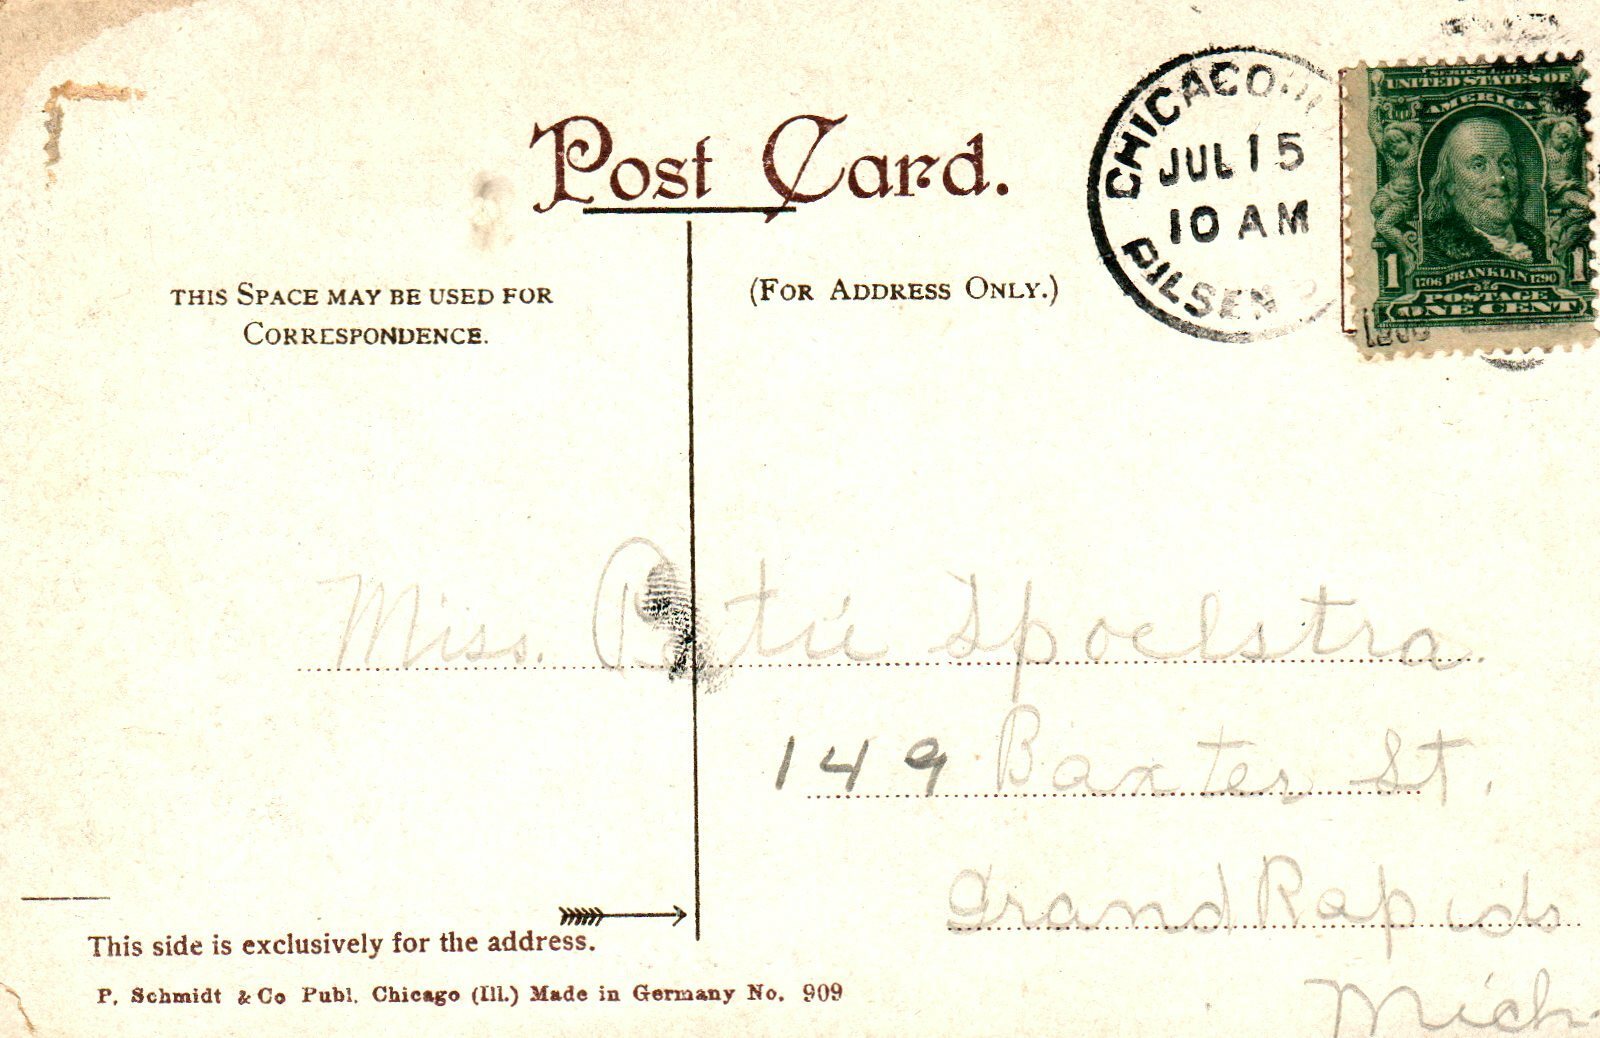 Post Card.
THIS SPACE MAY BE USED FOR
CORRESPONDENCE.
(FOR ADDRESS ONLY.)
CHICAGO, ILL
JUL 15
10 AM
PILSEN
UNITED STATES OF
AMERICA
1706 FRANKLIN 1790
1 1
POSTAGE
ONE CENT
Miss. Spoelstra.
149 Baxter St.
Grand Rapids
Mich.
This side is exclusively for the address.
P. Schmidt & Co Publ. Chicago (Ill.) Made in Germany No. 909